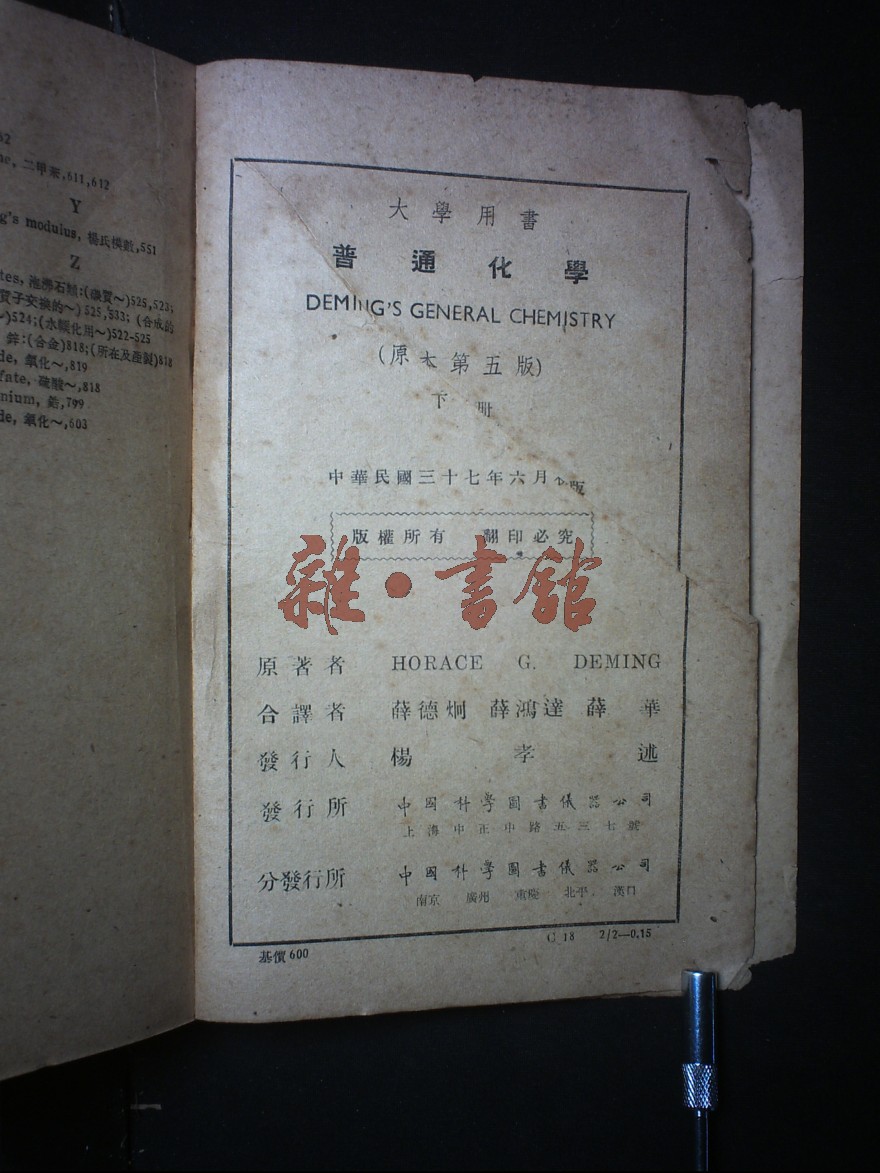 62
ne, 二甲苯,611,612
Y
g's modulus, 楊氏模數,551
Z
tes, 泡沸石類:(礬質~)525,523;
質子交換的~)525,533; (合成的
~)524;(水輭化用~)522-525
鋅:(合金)818;(所在及產製)818
de, 氧化~,819
fate, 硫酸~,818
nium, 鋯,799
de, 氧化~,603
大學用書
普通化學
DEMING'S GENERAL CHEMISTRY
(原本第五版)
下冊
中華民國三十七年六月 版
版權所有 翻印必究
雜·書館
原著者 HORACE G. DEMING
合譯者 薛德炯 薛鴻達 薛華
發行人 楊孝述
發行所 中國科學圖書儀器公司
上海中正中路五三七號
分發行所 中國科學圖書儀器公司
南京 廣州 重慶 北平 漢口
C 18 2/2—0.15
基價600